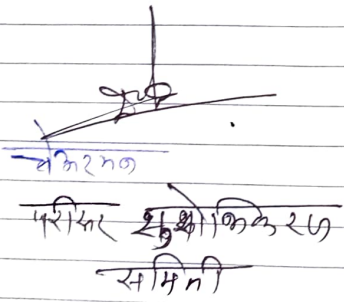 चेअरमन
परीसर सुशोभिकरण
समिती